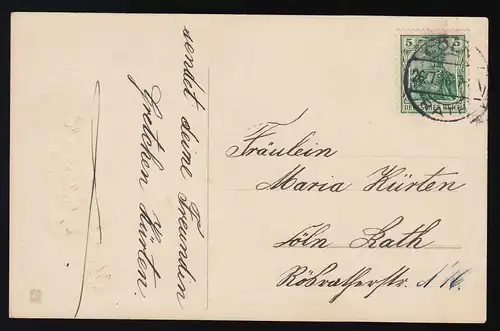 sendet deine Freundin
Gretchen Kürten.
5
DEUTSCHES REICH
CÖLN
26.7
Fräulein
Maria Kürten
Cöln Rath
Rösratherstr. N 16.